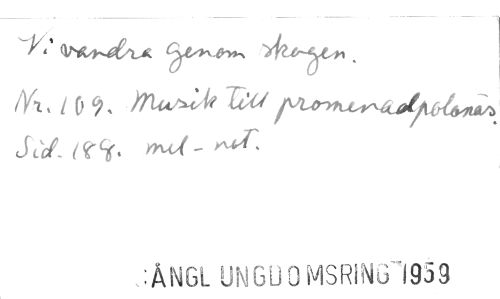 Vi vandra genom skogen.
Nr. 109. Musik till promenadpolonäs.
Sid. 188. mel-not.
:ÅNGL UNGDOMSRING 1959